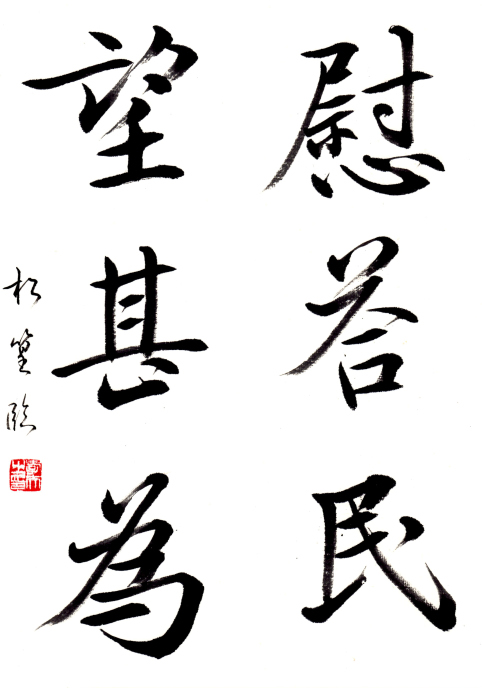 慰荅民
望甚為
松篁臨